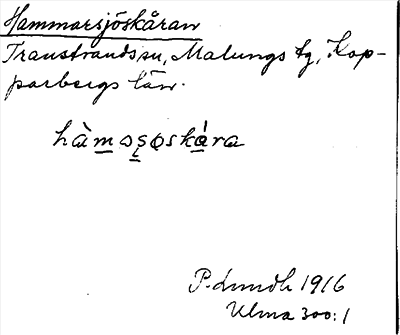 Hammarsjöskåran
Transtrands sn, Malungs tg, Kop-
parbergs län.
hàmsos̨skára
P. Lundh 1916
Ulma 300:1